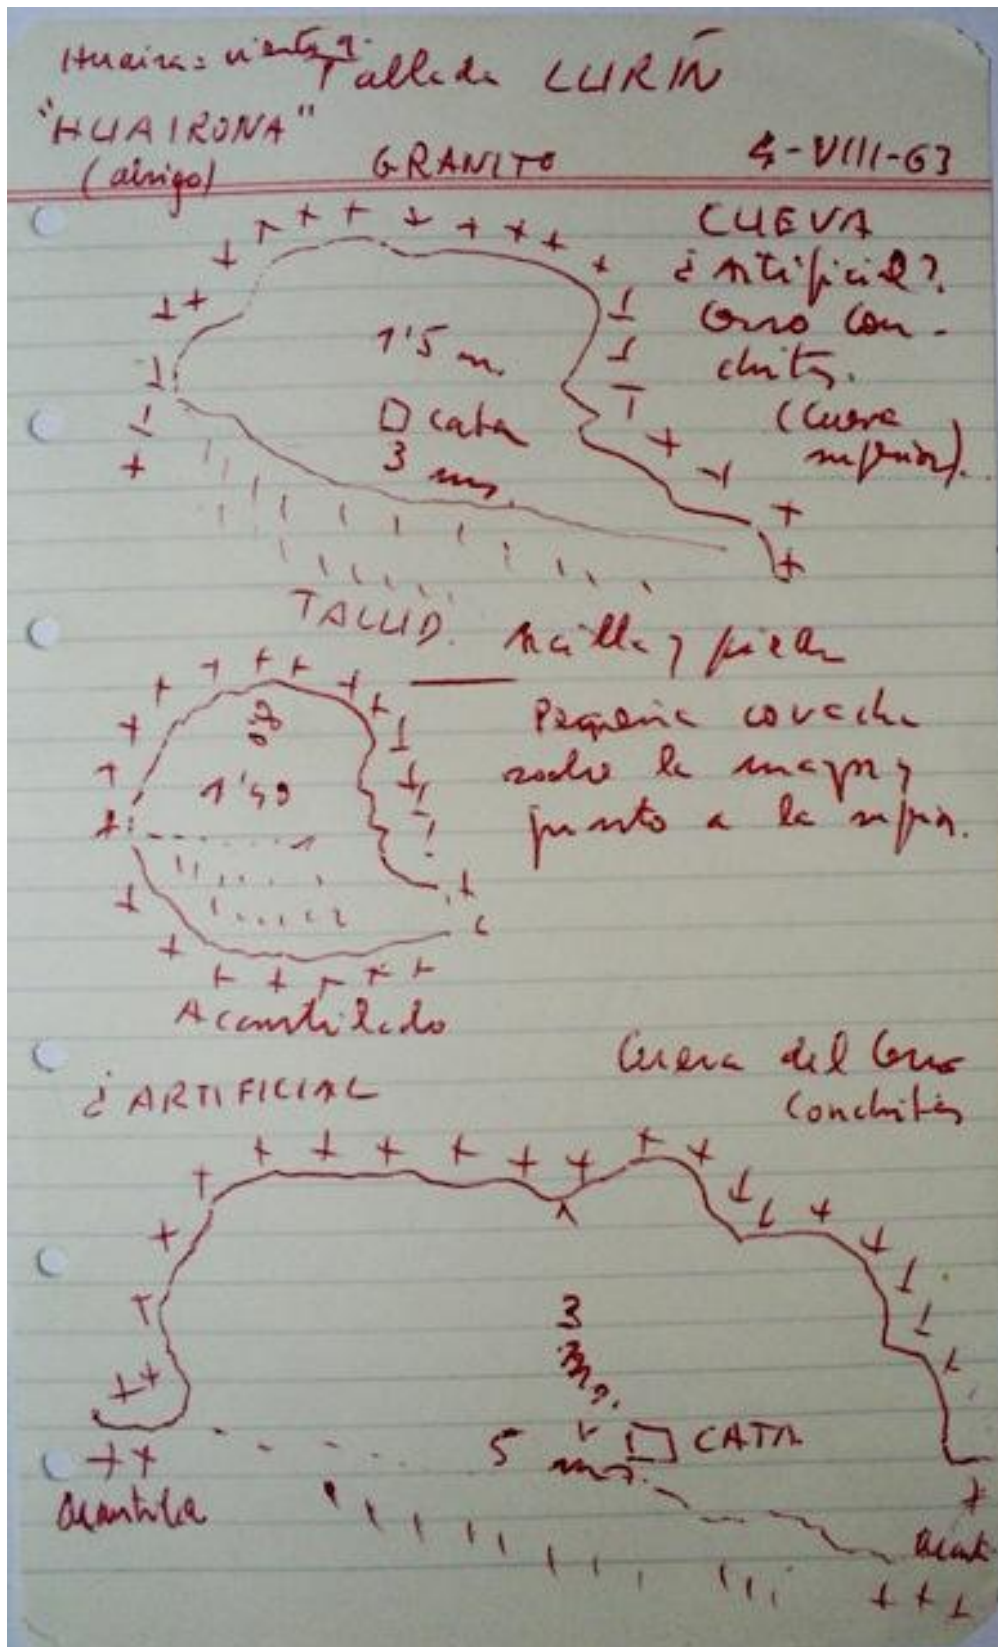 Huaira = viento
Tallada LURIN
"HUAIRONA"
(abrigo)
GRANITO
4-VIII-63
CUEVA
¿Artificial?
Cerro Con-
chitas.
(Cueva
superior).
1'5 m.
cata
3 ms.
TALUD.
Arcilla y piedra
Pequeña covacha
sobre la mayor y
junto a la supior.
1'49
Acantilado
¿ARTIFICIAL
Cueva del Cerro
Conchitas
3
ms.
5
ms.
CATA
Acantila
Acant